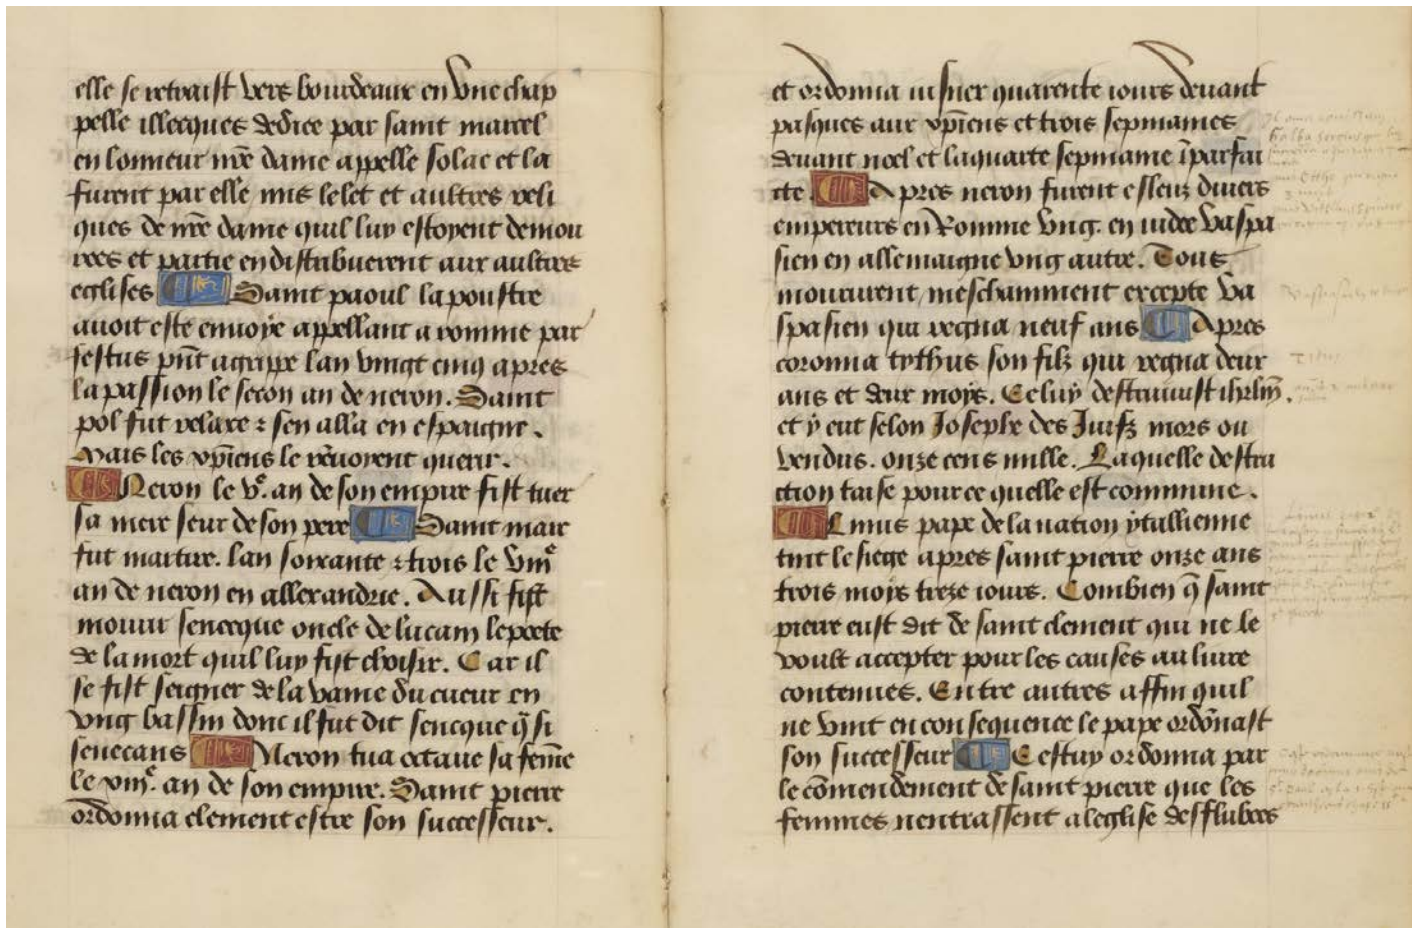 elle se retraist vers bourdeaux en vne chap
pelle illecques dediee par saint marcel
en lonneur nr̄e dame appelle solac et la
furent par elle mis le let et aultres reli
ques de nr̄e dame quil luy estoyent demou
rees et partie en distribuerent aux aultres
eglises Saint paoul lapoustre
auoit este enuoye appellant a romme par
festus pn̄t agrippe lan vingt cinq apres
la passion le secon an de neron. Saint
pol fut relaxe ⁊ sen alla en espaigne.
Mais les xp̄iens le rēuoyent querir.
Neron le v.e an de son empire fist tuer
sa mere seur de son pere Saint marc
fut martire. lan soixante ⁊ trois le viii.e
an de neron en allexandrie. Aussi fist
mourir senecque oncle de lucam le poete
de la mort quil luy fist choisir. Car il
se fist seigner de la vaine du cueur en
vng bassin donc il fut dit sencque q̄ si
senecans Neron tua octaue sa fem̄e
le viii.e an de son empire. Saint pierre
ordonna clement estre son successeur.
et ordonna iusner quarente iours deuant
pasques aux xp̄iens et trois sepmaines
deuant noel et la quarte sepmaine īparfai
cte. Apres neron furent esleuz diuers
empereurs en Romme vng. en iudee vaspa
sien en allemaigne vng autre. Tous
moururent meschamment excepte va
spasien qui regna neuf ans Apres
coronna tythus son filz qui regna deux
ans et deux moys. Celuy destruiust ihrlm̄.
et y eut selon Josephe des Juifz mors ou
vendus. onze cens mille. Laquelle destru
ction taise pource quelle est commune.
Linus pape de la nation ytallienne
tint le siege apres saint pierre onze ans
trois moys treze iours. Combien q̄ saint
pierre eust dit de saint clement qui ne le
voult accepter pour les causes au liure
contenues. Entre autres affin quil
ne vint en consequence le pape ordōnast
son successeur Cestuy ordonna par
le cōmendement de saint pierre que les
femmes nentrassent a leglise desflubees